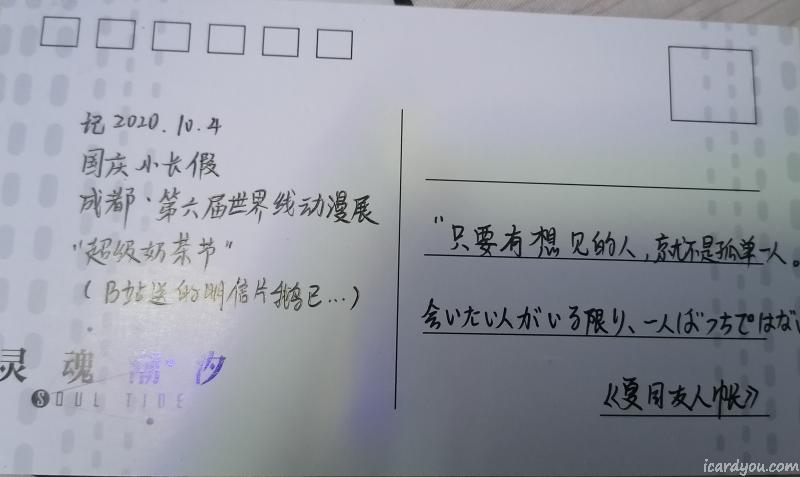 记2020.10.4
国庆小长假
成都·第六届世界线动漫展
"超级奶茶节"
(B站送的明信片而已...)
灵魂潮汐
SOUL TIDE
"只要有想见的人,就不是孤单一人。
会いたい人がいる限り、一人ぼっちではない
《夏目友人帐》
icardyou.com